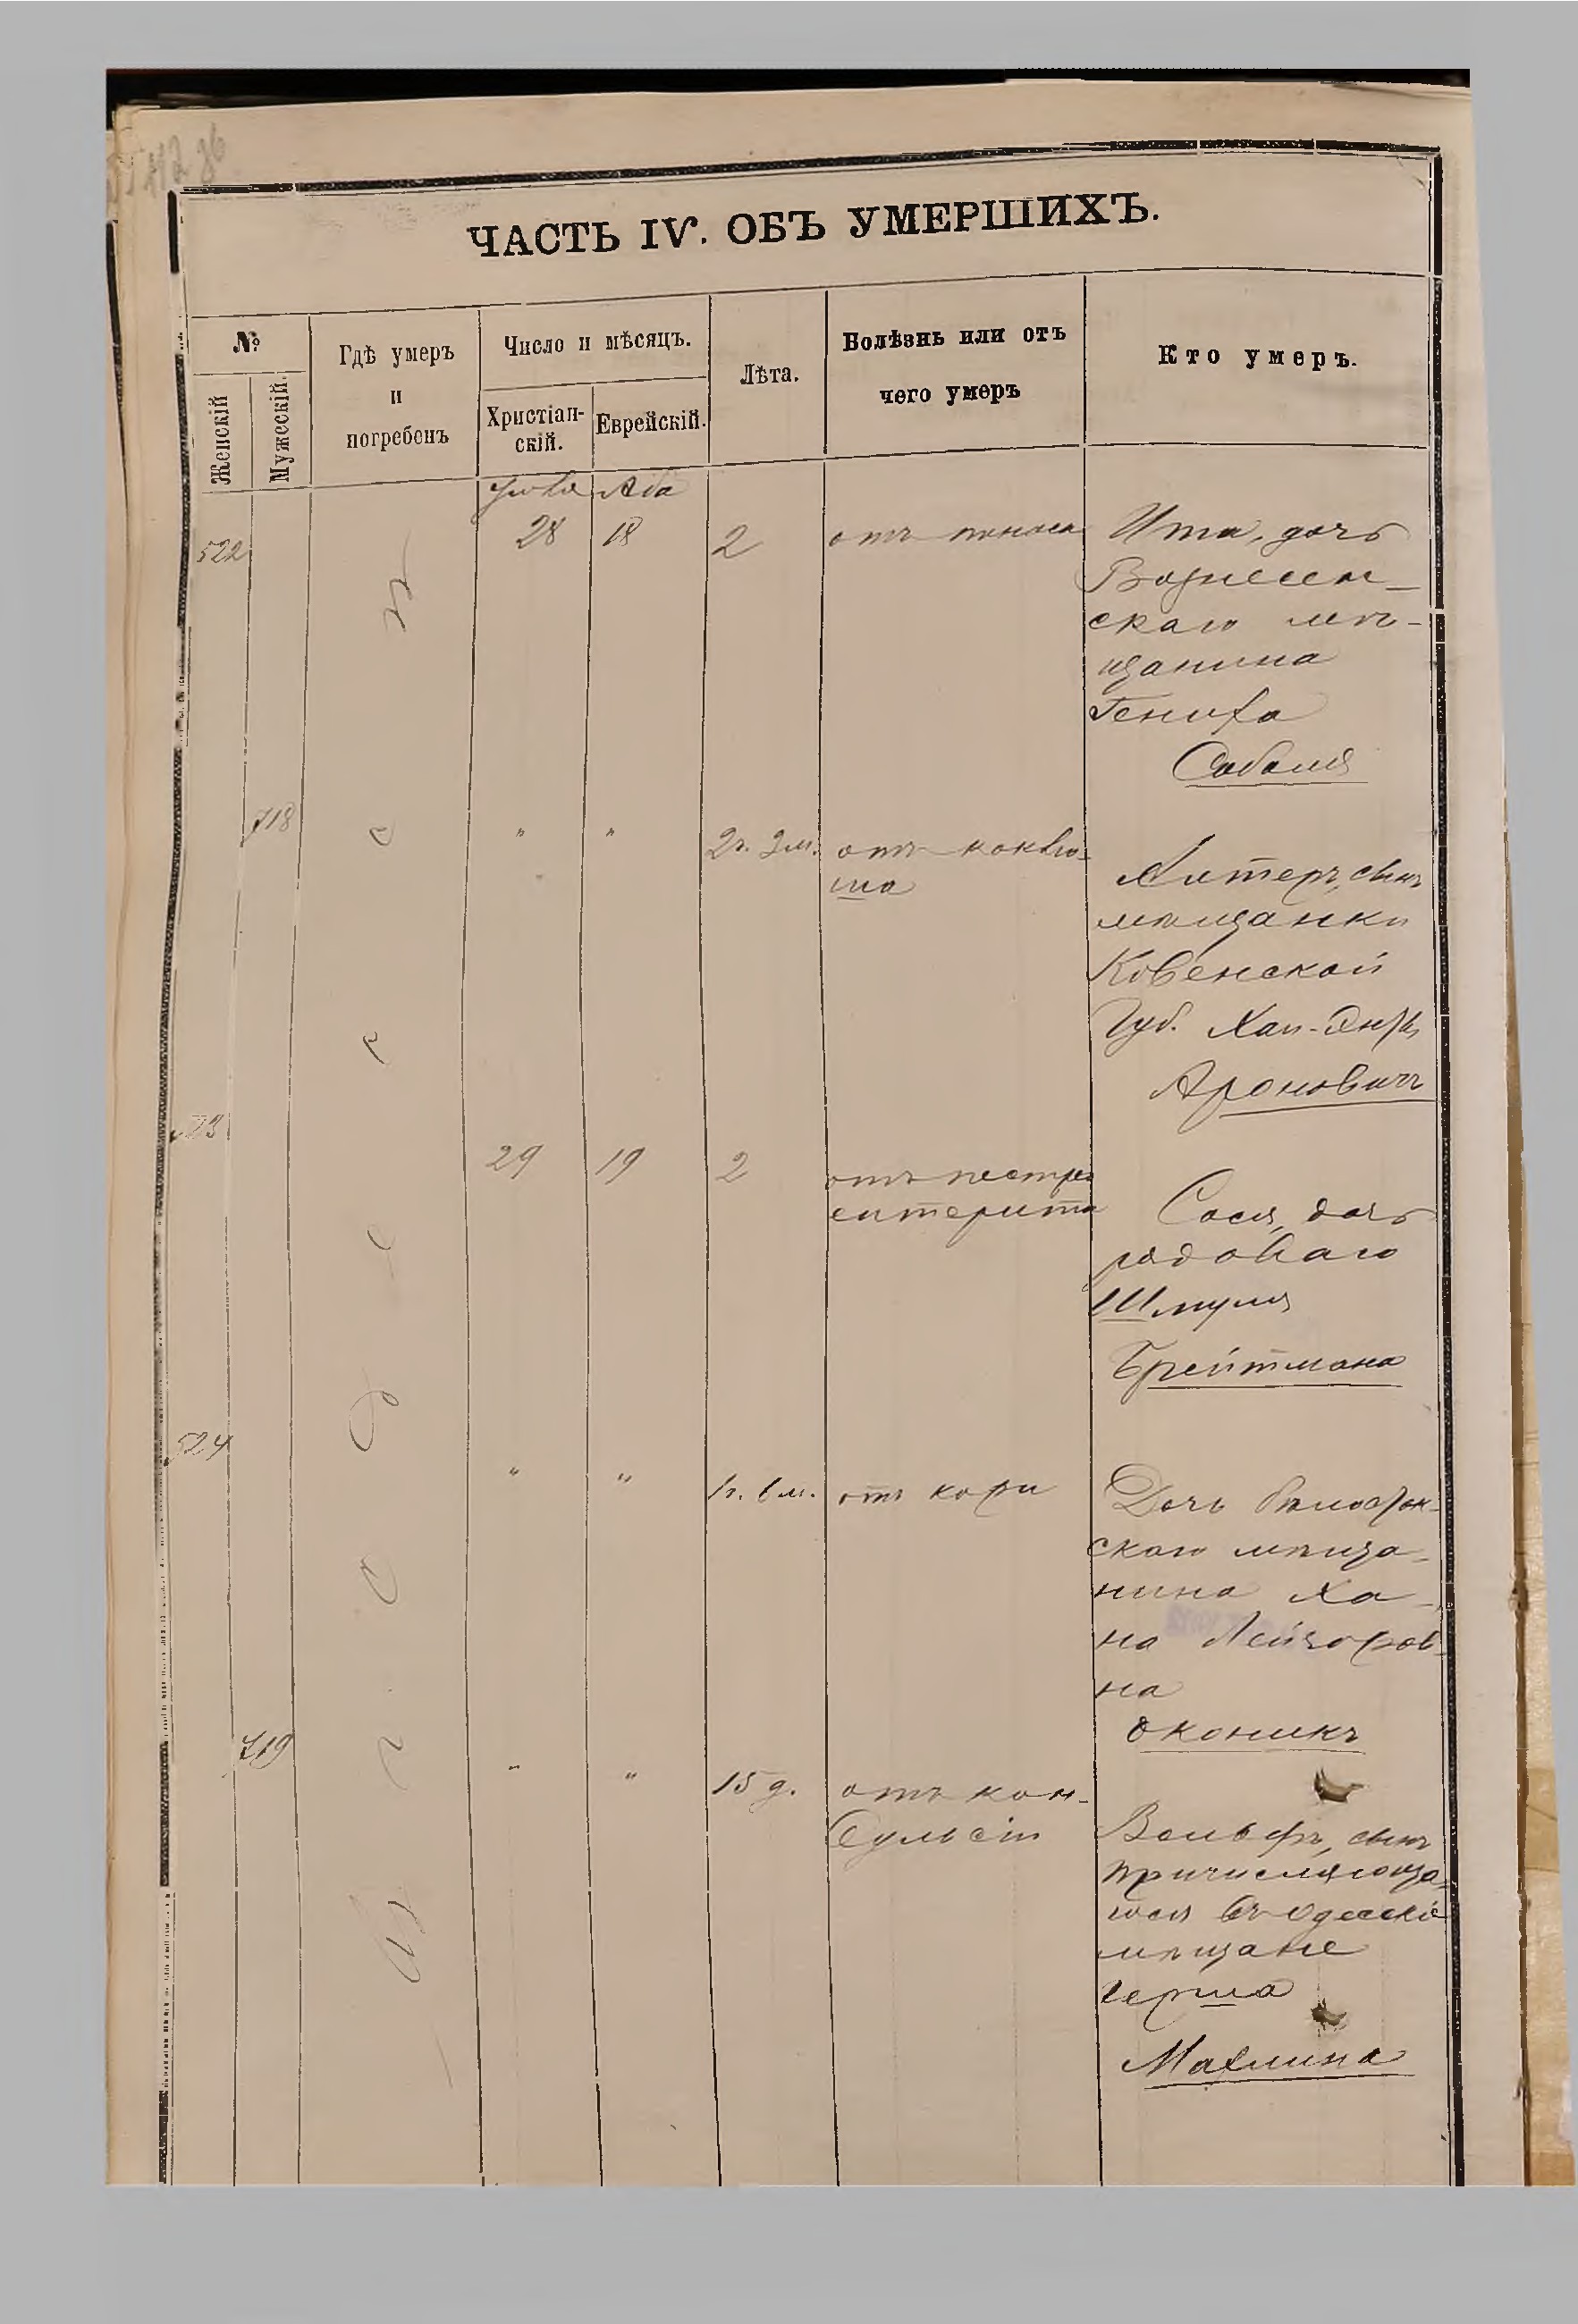 ЧАСТЬ IV. ОБЪ УМЕРШИХЪ.
№
Женскій
Мужескій.
Гдѣ умеръ
и
погребенъ
Число и мѣсяцъ.
Христіан-
скій.
Еврейскій.
Лѣта.
Болѣзнь или отъ
чего умеръ
Кто умеръ.
Іюля Аба
522 28 18 2 отъ поноса
Ита, дочь
Вознесен-
скаго мѣ-
щанина
Гениха
Соболя
718 " " 2г. 3м. отъ коклю-
ша
Алтеръ, сынъ
мѣщанки
Ковенской
Губ. Хаи-Энты
Ароновичъ
523 29 19 2 отъ гастро
ентерита
Сося, дочь
рядоваго
Шмуля
Брейтмана
524 " " 1г. 6м. отъ кори
Дочь бѣлосток-
скаго мѣща-
нина Ха-
на Лейзоров-
на
Оконикъ
719 " " 15 д. отъ кон-
вульсіи
Вольфъ, сынъ
причисляюща-
гося въ Одесскіе
мѣщане
Герша
Махлина
въ г. Одессѣ